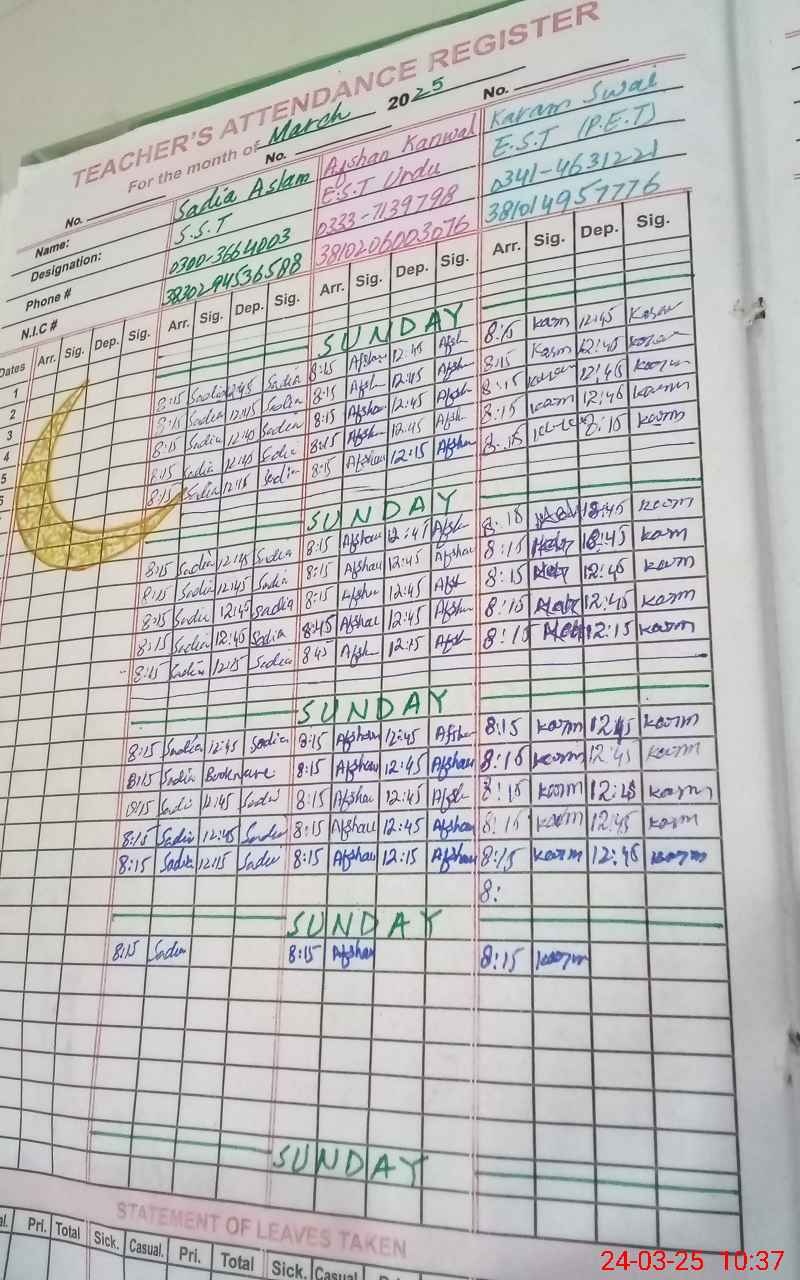 TEACHER'S ATTENDANCE REGISTER
For the month of March 2025
No. No. No.
Name: Sadia Aslam Afshan Kanwal Karam Swai
Designation: S.S.T E.S.T Urdu E.S.T (P.E.T)
Phone # 0300-3664003 0333-7139798 0341-4631221
N.I.C # 3830294536588 3810206003076 381014957776
Dates Arr. Sig. Dep. Sig. Arr. Sig. Dep. Sig. Arr. Sig. Dep. Sig. Arr. Sig. Dep. Sig.
1
2 SUNDAY
3 8:15 Sadia 12:45 Sadia 8:15 Afshan 12:45 Afsh 8:15 Karm 12:45
4 8:15 Sadia 12:45 Sadia 8:15 Afsh 12:45 Afsh 8:15 Karm 12:45
5 8:15 Sadia 12:45 Sadia 8:15 Afshan 12:45 Afsh 8:15 12:45
8:15 Sadia 12:45 Sadia 8:15 Afsh 12:45 Afsh 8:15 karm 12:45
8:15 Sadia 12:15 Sadia 8:15 Afshan 12:15 Afshan 8:15 8:15 karm
SUNDAY
8:15 Sadia 12:45 Sadia 8:15 Afshan 12:45 Afsh 8:15 12:45 karm
8:15 Sadia 12:45 Sadia 8:15 Afshan 12:45 Afshan 8:15 12:45 karm
8:15 Sadia 12:45 Sadia 8:15 Afshan 12:45 Afsh 8:15 12:45 karm
8:15 Sadia 12:45 Sadia 8:45 Afshan 12:45 Afshan 8:15 12:45 karm
8:15 Sadia 12:15 Sadia 845 Afsh 12:15 Afsh 8:15 12:15 karm
SUNDAY
8:15 Sadia 12:45 Sadia 8:15 Afshan 12:45 Afshan 8:15 karm 12:45 karm
8:15 Sadia 8:15 Afshan 12:45 Afshan 8:15 karm 12:45 karm
8:15 Sadi 12:45 Sadia 8:15 Afshan 12:45 Afsh 8:15 karm 12:45 karm
8:15 Sadia 12:45 Sadia 8:15 Afshan 12:45 Afshan 8:15 karm 12:45 karm
8:15 Sadia 12:15 Sadia 8:15 Afshan 12:15 Afshan 8:15 karm 12:45 karm
8:
SUNDAY
8:15 Sadia 8:15 Afshan 8:15 karm
SUNDAY
STATEMENT OF LEAVES TAKEN
Pri. Total Sick. Casual. Pri. Total Sick. Casual
24-03-25 10:37